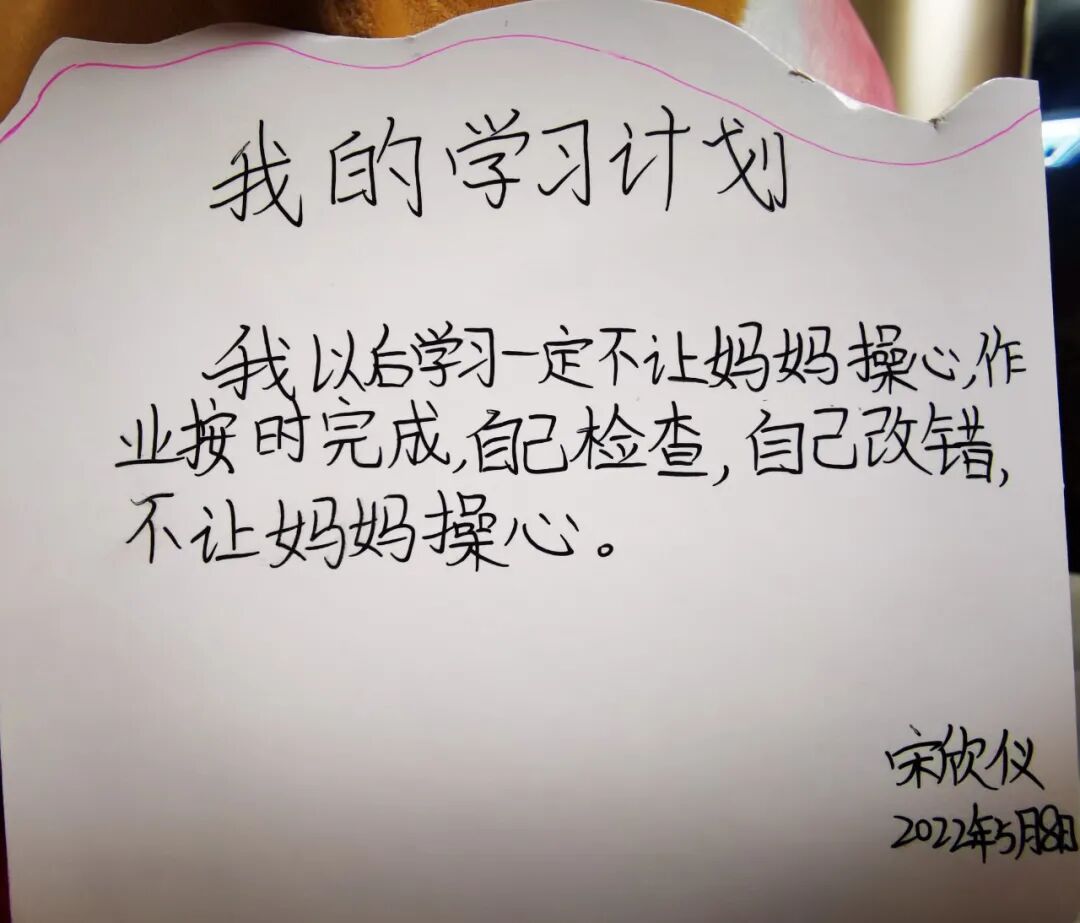 我的学习计划
我以后学习一定不让妈妈操心,作
业按时完成,自己检查,自己改错,
不让妈妈操心。
宋欣仪
2022年5月8日